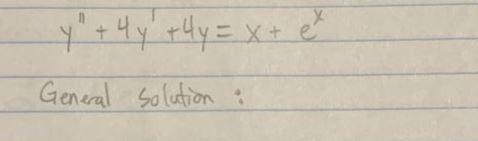 y'' + 4y' + 4y = x + e^x
General Solution :